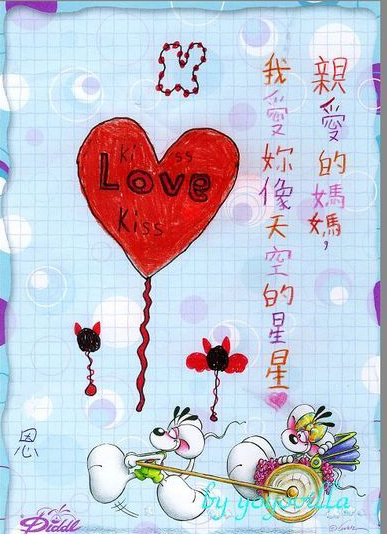 親愛的媽媽，
我愛妳像天空的星星
Ki ss
Love
Kiss
恩
by yoyovilla
Diddl